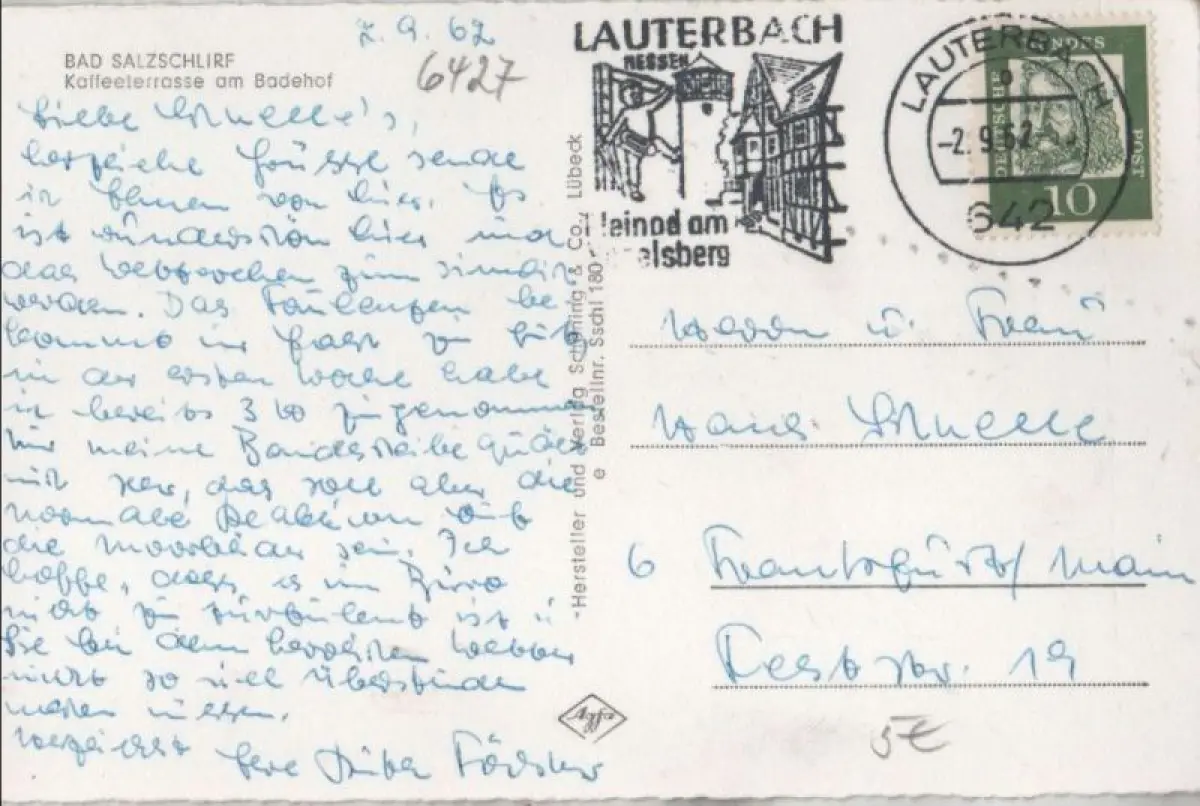 2.9.62
BAD SALZSCHLIRF
Kaffeeterrasse am Badehof
6427
Liebe Schnelle's,
herzliche Grüsse sende
ich Ihnen von hier. Es
ist wunderschön hier und
das Wetter
werden. Das Faulenzen be
kommt mir fast zu gut
in der ersten Woche habe
ich bereits 3 zugenommen
Nur meine Bandscheibe quält
mich sehr, das soll aber die
normale Reaktion auf
die Moorbäder sein. Ich
hoffe, dass es im Büro
nicht zu turbulent ist u.
Sie bei dem herrlichen Wetter
nicht so viel Überstunden
machen müssen.
Herzlichst Ihre
Hersteller und Verlag Schöning & Co., Lübeck
Bestellnr. Sschl 180
Agfa
LAUTERBACH
HESSEN
leinod am
elsberg
LAUTERBACH
-2.9.62
642
DEUTSCHE BUNDESPOST
10
Herrn u. Frau
Hans Schnelle
6 Frankfurt/Main
str. 19
5€